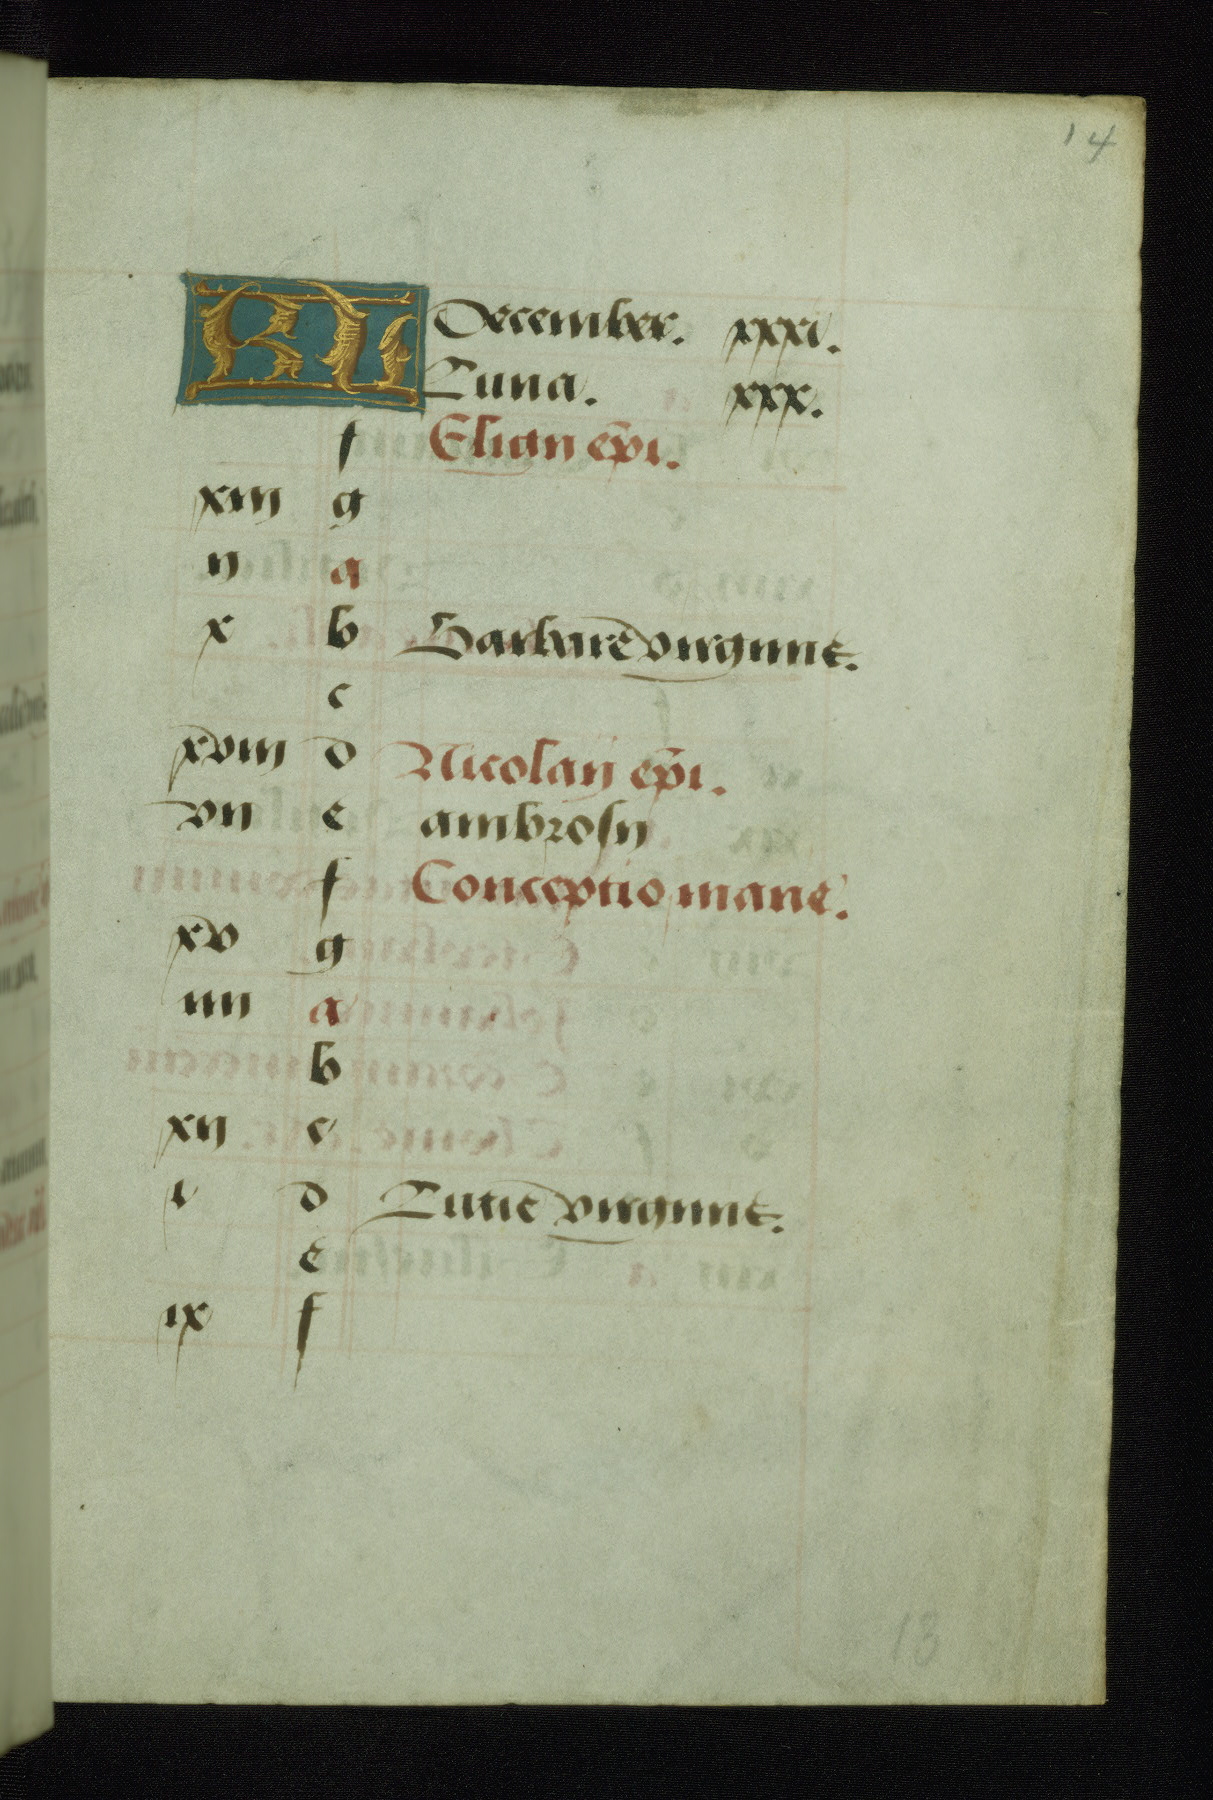 14
KL December. xxxi.
Luna. xxx.
f Eligii ep̄i.
xiii g
ii a
x b Barbare virginis.
c
xviii d Nicolaij ep̄i.
vii e ambrosij
f Conceptio marie.
xv g
iiii a
b
xii c
i d Lucie virginis.
e
ix f
13